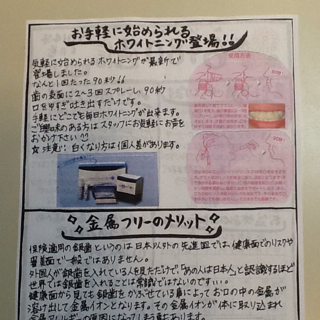 お手軽に始められる
ホワイトニング登場!!
気軽に始められるホワイトニングが最新で
登場しました。
なんと1回たった90秒!!
歯の表面に2〜3回スプレーし、90秒
口をゆすぎ吐き出すだけです。
手軽にどこでも毎日ホワイトニングが出来ます。
ご興味のある方はスタッフにお気軽にお声を
おかけ下さい!!
☆注意: 白くなり方は個人差があります。
金属フリーのメリット
保険適用の銀歯というのは日本以外の先進国では、健康面でのリスクや
審美面で一般ではありません。
外国人が銀歯を入れている人を見ただけで、「あの人は日本人」と認識するほど
世界では銀歯を入れることは常識ではないのです…。
健康面から見ても銀歯をかぶせている事によってお口の中の金属が
溶け出して金属イオンとなります。その金属イオンが体に取り込まれ
金属アレルギーの原因になってしまう事もあります。